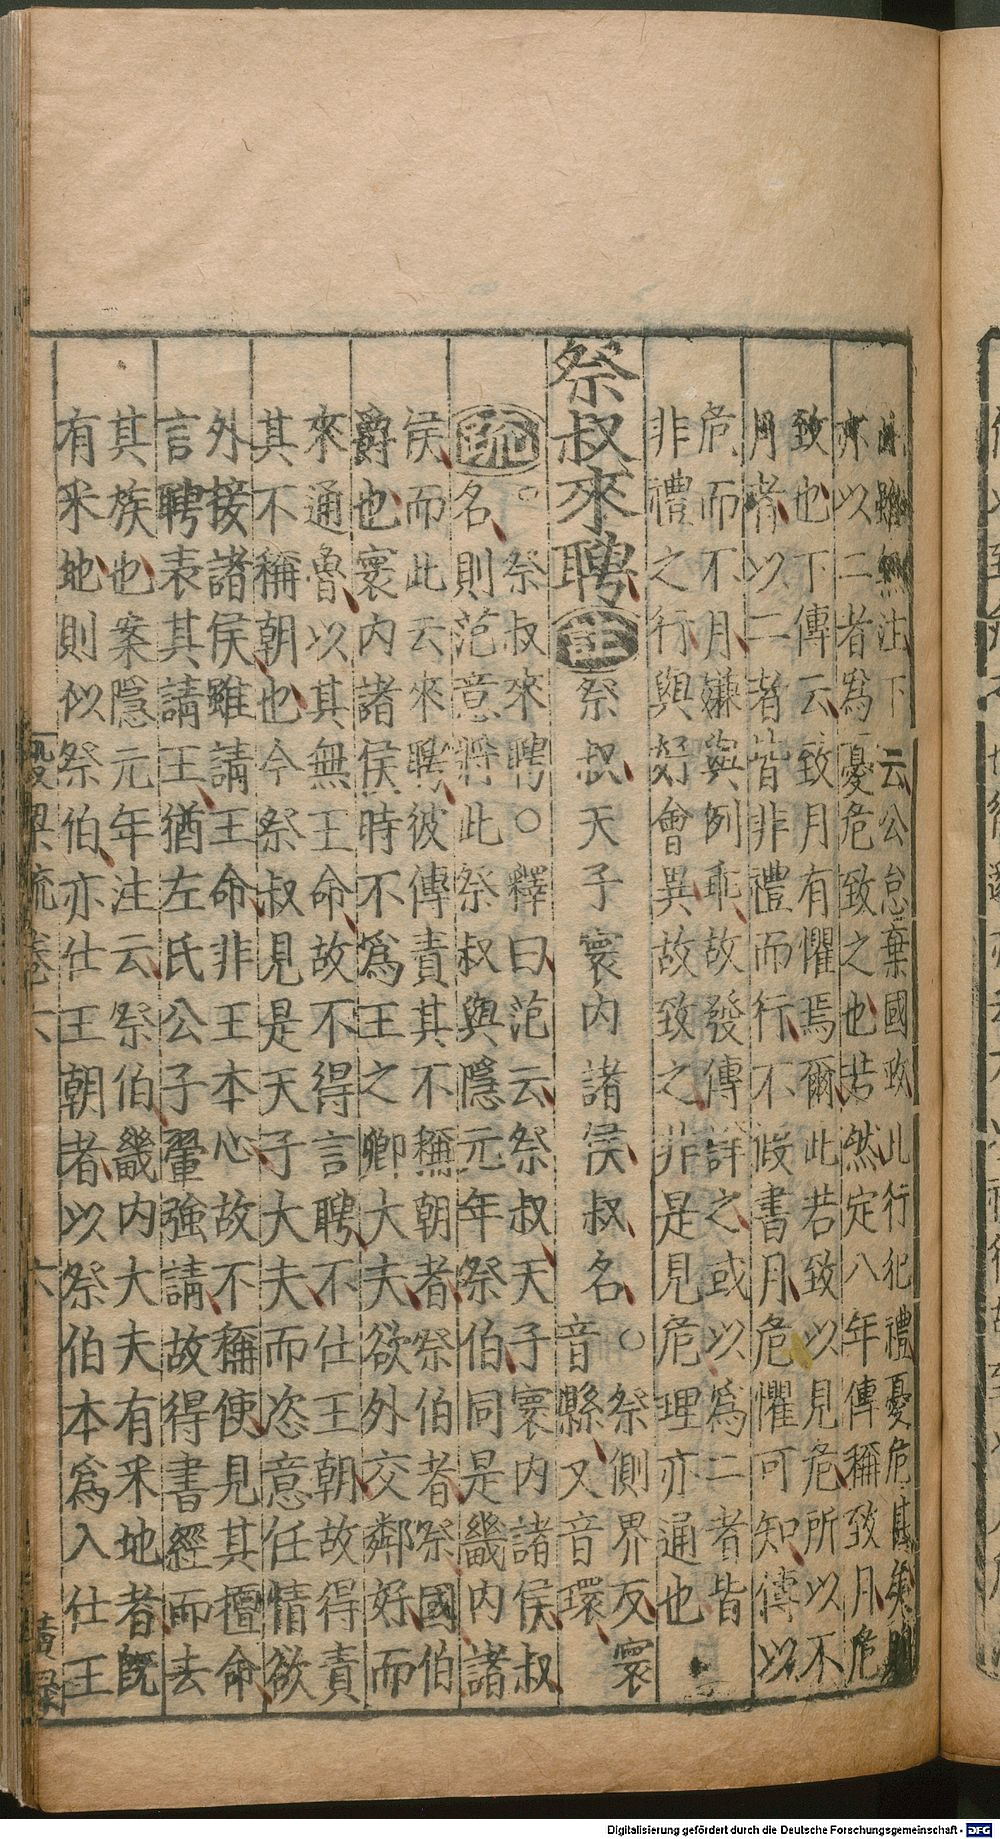 雖無注下云公怠棄國政比行犯禮憂危甚矣
亦以二者爲憂危致之也若然定八年傳稱致月危
致也下傳云致月有懼焉爾此若致以見危所以不
月者以二者皆非禮而行不假書月危懼可知傳以
危而不月嫌與例乖故發傳詳之或以爲二者皆
非禮之行與好會異故致之非是見危理亦通也
祭叔來聘
註祭叔天子寰内諸侯叔名〇祭側界反寰
音縣又音環
疏祭叔來聘〇釋曰范云祭叔天子寰内諸侯叔
名則范意將此祭叔與隱元年祭伯同是畿内諸
侯而此云來聘彼傳責其不稱朝者祭伯者祭國伯
爵也寰内諸侯時不爲王之卿大夫欲外交鄰好而
來通魯以其無王命故不得言聘不仕王朝故得責
其不稱朝也今祭叔見是天子大夫而恣意任情欲
外接諸侯雖請王命非王本心故不稱使見其擅命
言聘表其請王猶左氏公子翬強請故得書經而去
其族也案隱元年注云祭伯畿内大夫有釆地者既
有釆地則似祭伯亦仕王朝者以祭伯本爲入仕王
榖梁疏卷六
六